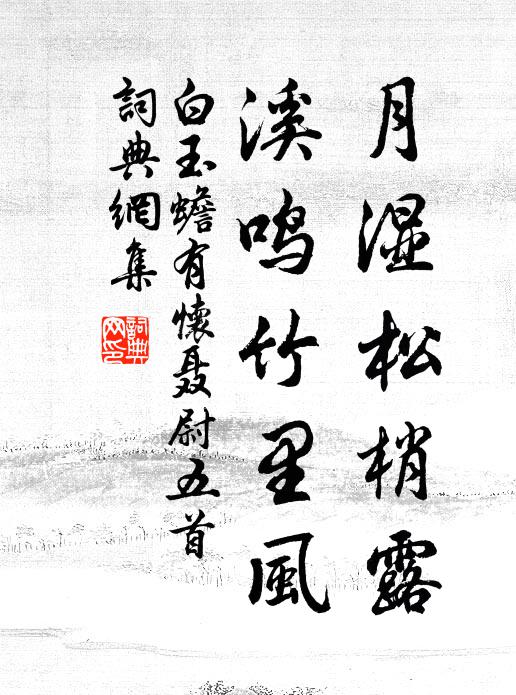 月湿松梢露
溪鸣竹里風
白玉蟾有懷聂尉五首
詞典網集
詞典網印